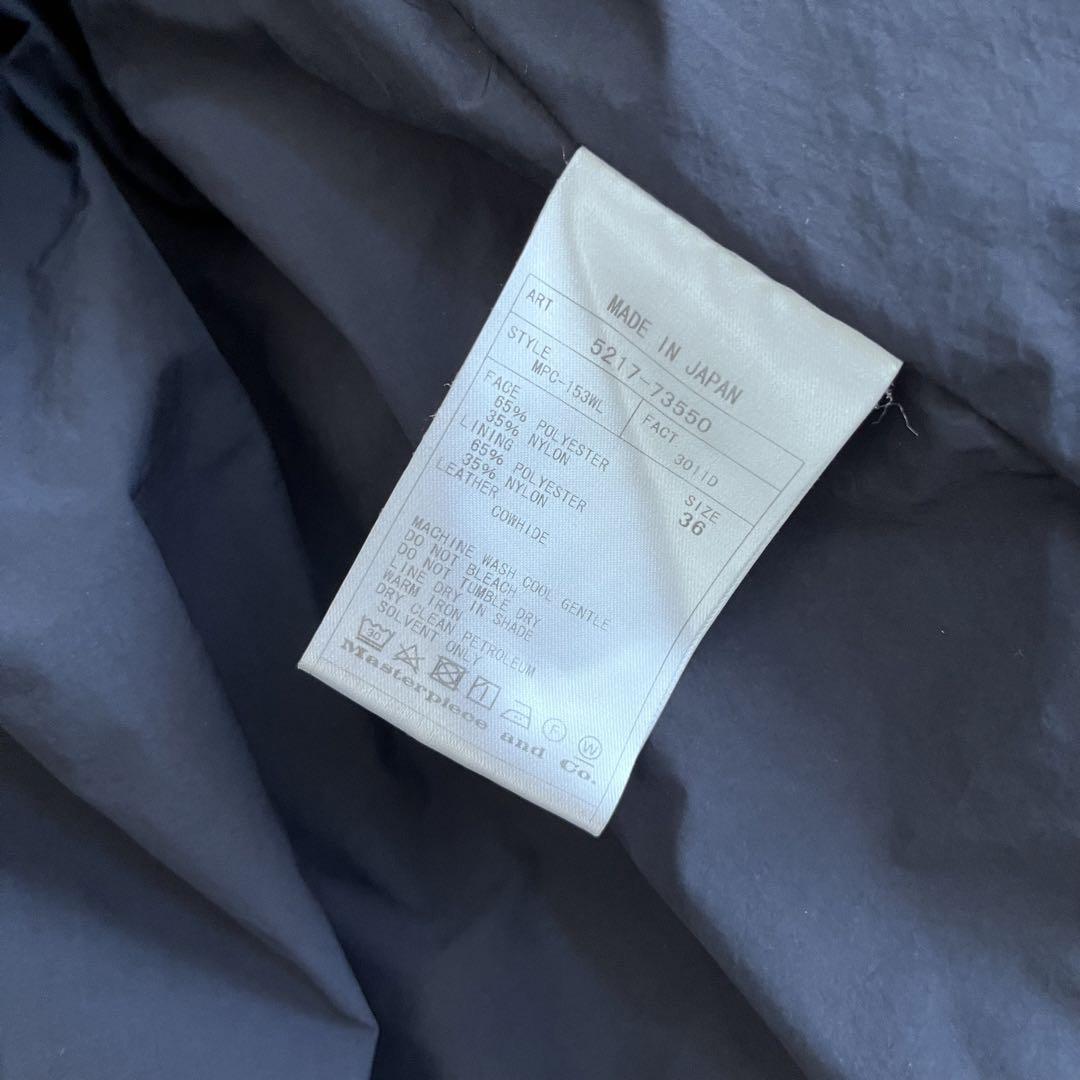 MADE IN JAPAN
ART 5217-73550
STYLE MPC-153WL FACT 3011D
FACE SIZE
65% POLYESTER 36
35% NYLON
LINING
65% POLYESTER
35% NYLON
LEATHER
COWHIDE
MACHINE WASH COOL GENTLE
DO NOT BLEACH
DO NOT TUMBLE DRY
LINE DRY IN SHADE
WARM IRON
DRY CLEAN PETROLEUM
SOLVENT ONLY
30 F W
Masterpiece and Co.